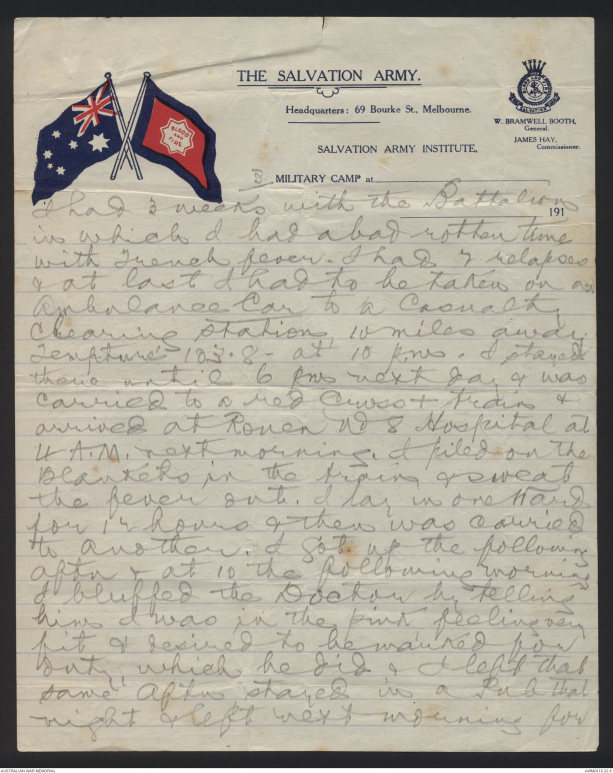 THE SALVATION ARMY.
Headquarters: 69 Bourke St., Melbourne.
BLOOD AND FIRE
W. BRAMWELL BOOTH,
General.
JAMES HAY,
Commissioner.
SALVATION ARMY INSTITUTE,
MILITARY CAMP at
191
I had 3 weeks with the Battalion
in which I had a bad rotten time
with Trench fever. I had 7 relapses
& at last I had to be taken on an
Ambulance Car to a Casualty
Clearing Station, 10 miles away.
Tempture 103.8 - at 10 pm. I stayed
there until 6 pm next day & was
carried to a red Cross + train &
arrived at Rouen No 8 Hospital at
4 A.M. next morning. I piled on the
Blankets in the train & sweat
the fever out. I lay in one Ward
for 12 hours & then was carried
to another. I got up the following
aftn & at 10 the following morning
I bluffed the Doctor by telling
him I was in the pink, feeling very
fit & desired to be marked for
out, which he did & I left that
same aftn stayed in a Pub that
night & left next morning for
AUSTRALIAN WAR MEMORIAL